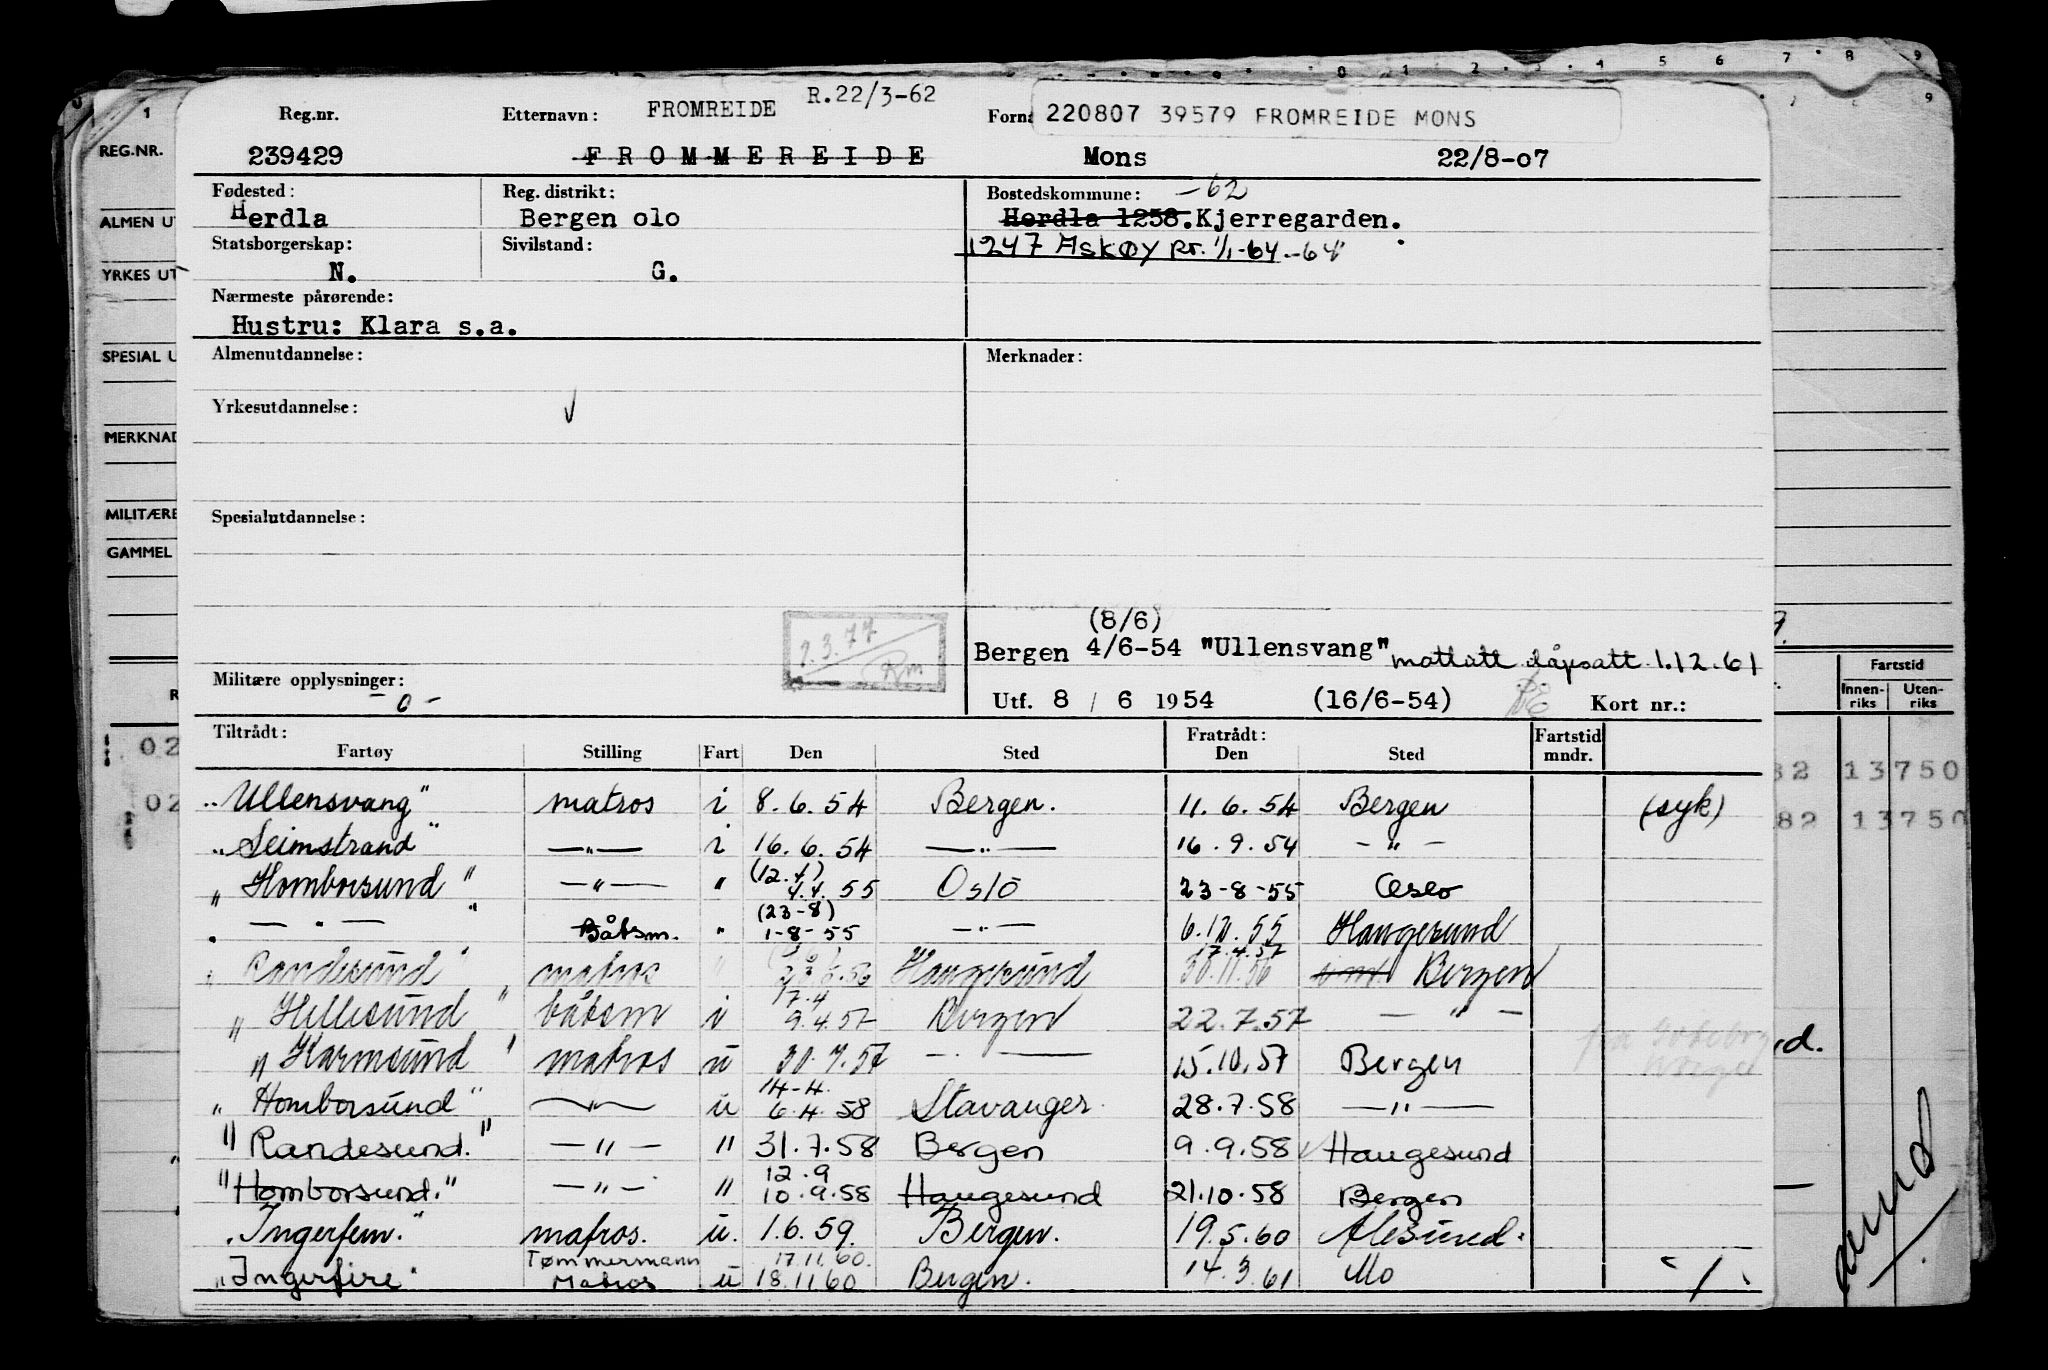 Reg.nr. Etternavn: FROMREIDE R.22/3-62 Forn 220807 39579 FROMREIDE MONS
239429 FROMMEREIDE Mons 22/8-07
Fødested: Reg. distrikt: Bostedskommune: -62
Herdla Bergen olo Herdla 1258. Kjerregarden.
Statsborgerskap: Sivilstand: 1247 Askøy kr. 1/1-64 -64
N. G.
Nærmeste pårørende:
Hustru: Klara s.a.
Almenutdannelse: Merknader:
Yrkesutdannelse:
Spesialutdannelse:
(8/6)
Bergen 4/6-54 "Ullensvang" mottatt dåpsatt 1.12.61
7.3.77
Militære opplysninger: -0-
Utf. 8 / 6 1954 (16/6-54) Kort nr.:
Tiltrådt: Fratrådt: Fartstid
Fartøy Stilling Fart Den Sted Den Sted mndr.
"Ullensvang" matros i 8.6.54 Bergen. 11.6.54 Bergen (syk)
"Seimstrand" —"— i 16.6.54 —"— 16.9.54 —"—
"Homborsund" —"— " (12.4) 4.4.55 Oslo 23-8-55 Oslo
—"— " Båtsm. " (23-8) 1-8-55 —"— 6.12.55 Haugesund
"Randesund" matros " Haugesund 30.11.56 17.4.57 Bergen
"Hillesund" båtsm i 17.4 9.4.57 Bergen 22.7.57 —"—
"Karmsund" matros u 30.7.57 —"— 15.10.57 Bergen
"Homborsund" —"— u 14-4. 6.4.58 Stavanger 28.7.58 —"—
"Randesund." —"— " 31.7.58 Bergen 9.9.58 Haugesund
"Homborsund." —"— " 12.9 10.9.58 Haugesund 21.10.58 Bergen
"Ingerfem." matros. u. 1.6.59. Bergen. 19.5.60 Ålesund.
"Ingerfire" Tømmermann Matros u 17.11.60. 18.11.60 Bergen. 14.3.61 Mo
1
REG.NR.
ALMEN UT
YRKES UT
SPESIAL U
MERKNAD
MILITÆRE
GAMMEL
R
02
02
0 1 2 3 4 5 6 7 8 9
7 9
Fartstid
Innen-riks Uten-riks
82 13750
82 13750